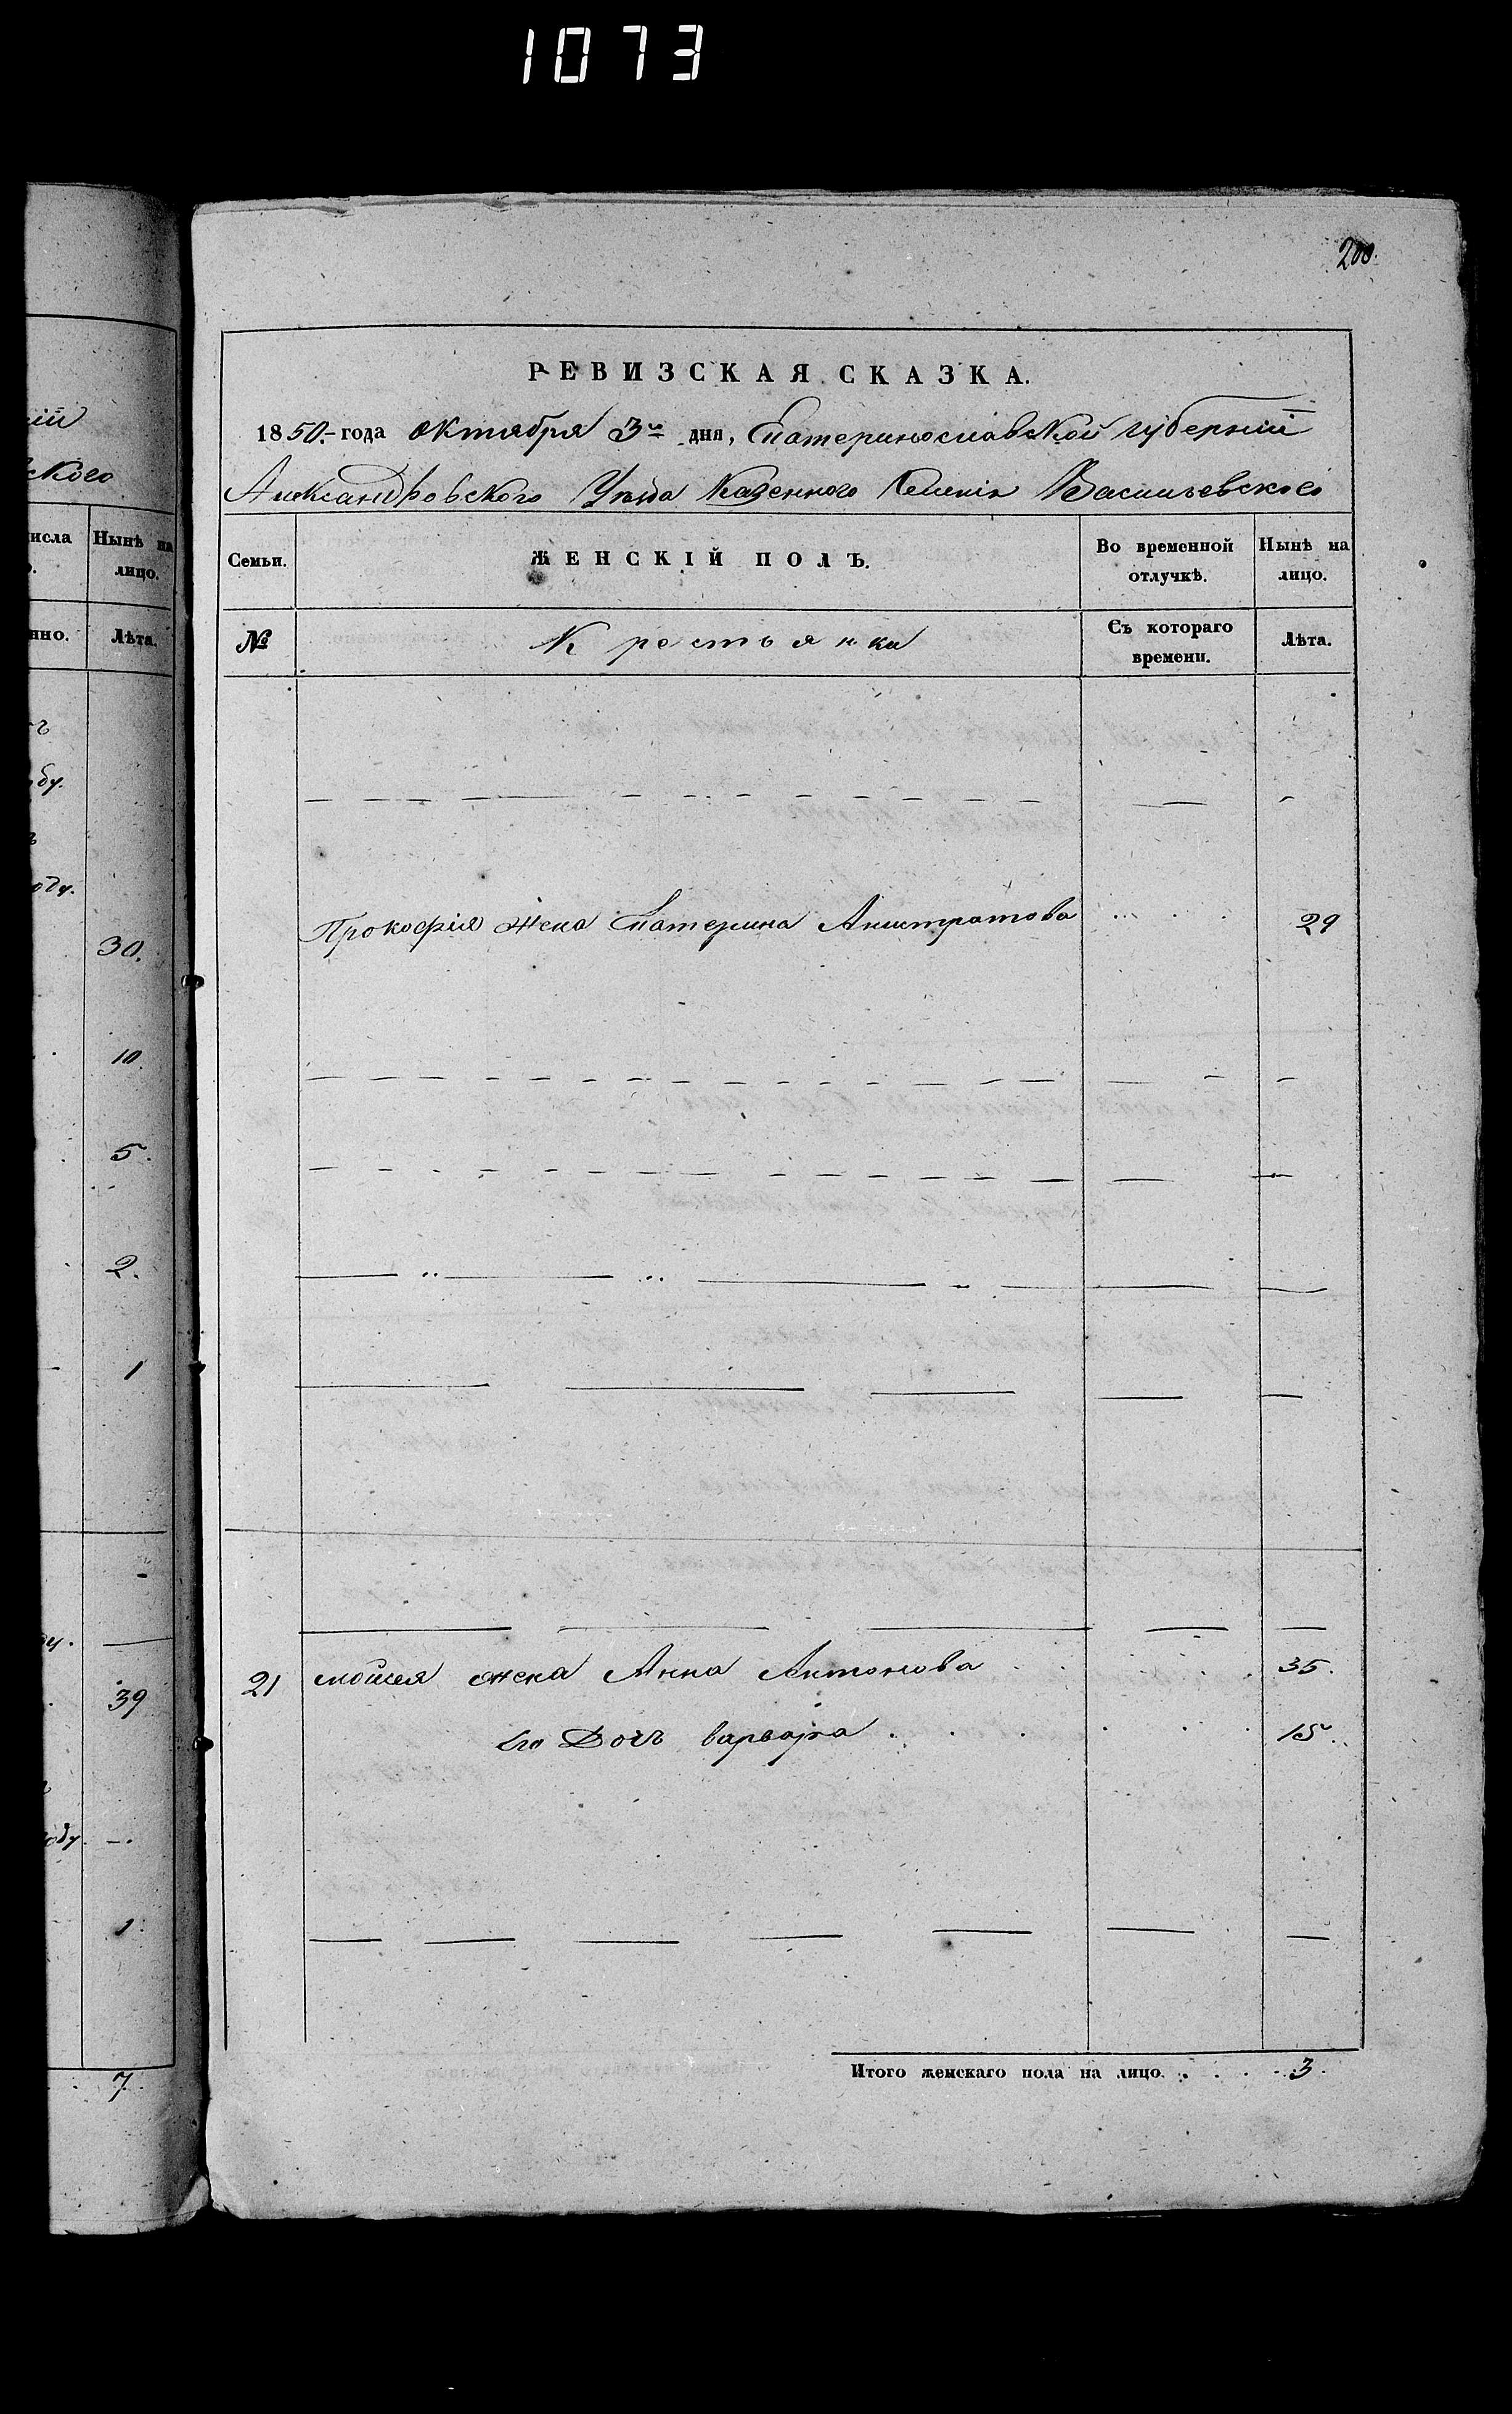 1073
ій
ского
исла Нынѣ на
лицо.
нно. Лѣта.
бу.
оду.
30.
10.
5.
2.
1
39
оду. —.
1.
7.
200.
РЕВИЗСКАЯ СКАЗКА.
1850.- года октября 3го дня, Екатеринославской губерніи
Александровского Уѣзда Казенного Селенія Васильевского
Семьи. ЖЕНСКІЙ ПОЛЪ. Во временной отлучкѣ. Нынѣ на лицо.
№ Крестьянки Съ котораго времени. Лѣта.
Прокофія жена Екатерина Анистратова 29
21 Моисея жена Анна Антонова 35.
Его Дочь варвара 15.
Итого женскаго пола на лицо. 3.